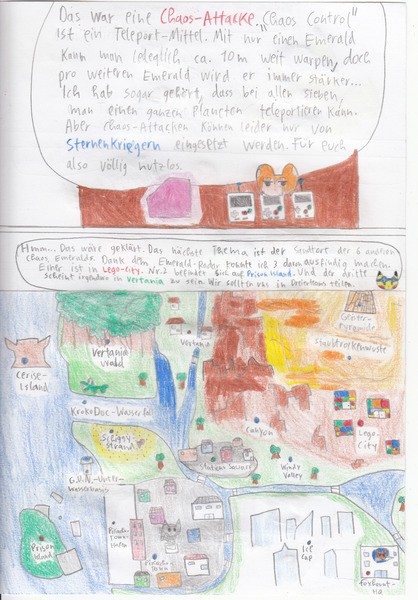 Das war eine Chaos-Attacke. „Chaos Control"
ist ein Teleport-Mittel. Mit nur einen Emerald
kann man lediglich ca. 10m weit warpen, doch
pro weiteren Emerald wird er immer stärker...
Ich hab sogar gehört, dass bei allen sieben,
man einen ganzen Planeten teleportieren kann.
Aber Chaos-Attacken können leider nur von
Sternenkriegern eingesetzt werden. Für euch
also völlig nutzlos.
Hmm... Das wäre geklärt. Das nächste Thema ist der Standort der 6 anderen
Chaos Emeralds. Dank dem Emerald-Radar konnte ich 3 davon ausfindig machen.
Einer ist in Lego-City. Nr. 2 befindet sich auf Prison Island. Und der dritte
scheint irgendwo in Vertania zu sein. Wir sollten uns in Dreierteams teilen.
Geister-
Pyramide
Staubtrockenwüste
Vertania
Vertania
Wald
Cerise-
Island
KrokoDoc-Wasserfall
Strand
Canyon
Lego-
City
Station Square
Windy
Valley
G.U.N.-
Prison
Island
Ice
Cap
HQ